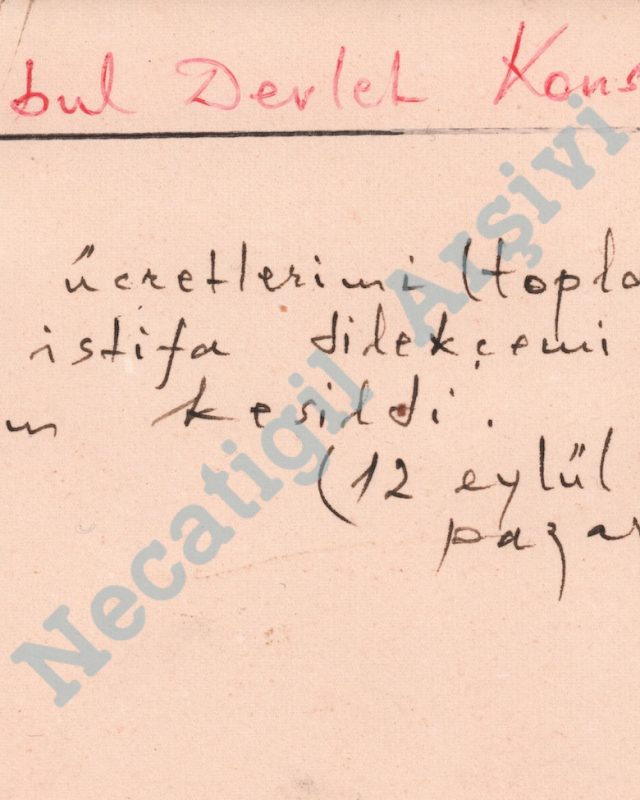 bul Devlet Kons
ücretlerimi (topla
istifa dilekçemi
m kesildi.
(12 eylül
pazar
Necatigil Arşivi